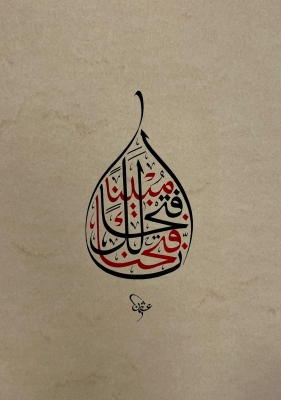 إنا فتحنا لك فتحا مبينا